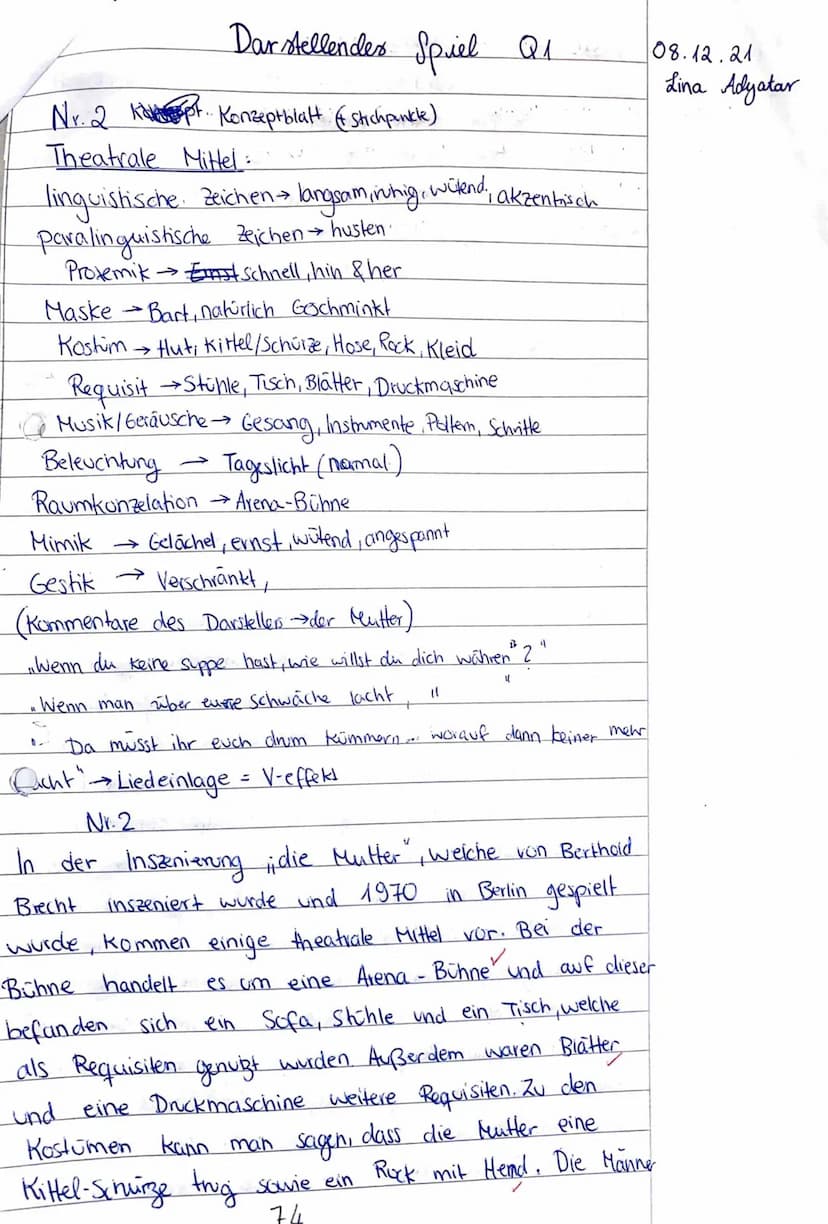 Darstellendes Spiel Q1
08.12.21
Lina Adyatar
Nr.2 Konzeptblatt (+ Stichpunkte)
Theatrale Mittel:
linguistische Zeichen → langsam, ruhig, wütend, akzentrisch
paralinguistische Zeichen → husten
Proxemik → Ernst schnell, hin & her
Maske → Bart, natürlich Geschminkt
Kostüm → Hut, Kittel/Schürze, Hose, Rock, Kleid
Requisit → Stühle, Tisch, Blätter, Druckmaschine
Musik/Geräusche → Gesang, Instrumente, Poltern, Schritte
Beleuchtung → Tageslicht (normal)
Raumkonzelation → Arena-Bühne
Mimik → Gelächel, ernst, wütend, angespannt
Gestik → Verschränkt,
(Kommentare des Darstellers → der Mutter)
„Wenn du keine suppe hast, wie willst du dich währen"?"
„Wenn man über eure schwäche lacht, " "
"- Da müsst ihr euch drum kümmern... worauf dann keiner mehr
lacht" → Liedeinlage = V-effekt
Nr.2
In der Inszenierung „die Mutter", welche von Berthold
Brecht inszeniert wurde und 1970 in Berlin gespielt
wurde, kommen einige theatrale Mittel vor. Bei der
Bühne handelt es um eine Arena-Bühne und auf dieser
befanden sich ein Sofa, Stühle und ein Tisch, welche
als Requisiten genutzt wurden. Außerdem waren Blätter
und eine Druckmaschine weitere Requisiten. Zu den
Kostümen kann man sagen, dass die Mutter eine
Kittel-Schürze trug sowie ein Rock mit Hemd. Die Männer
74